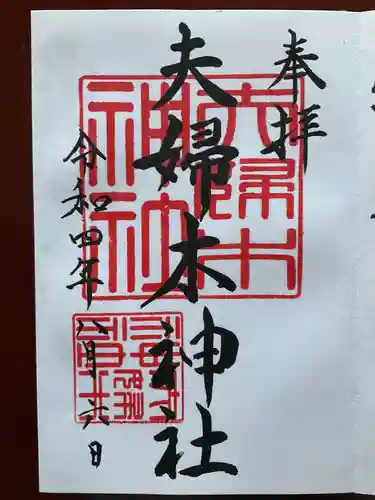 奉拝
夫婦木神社
夫婦木神社
令和四年八月六日